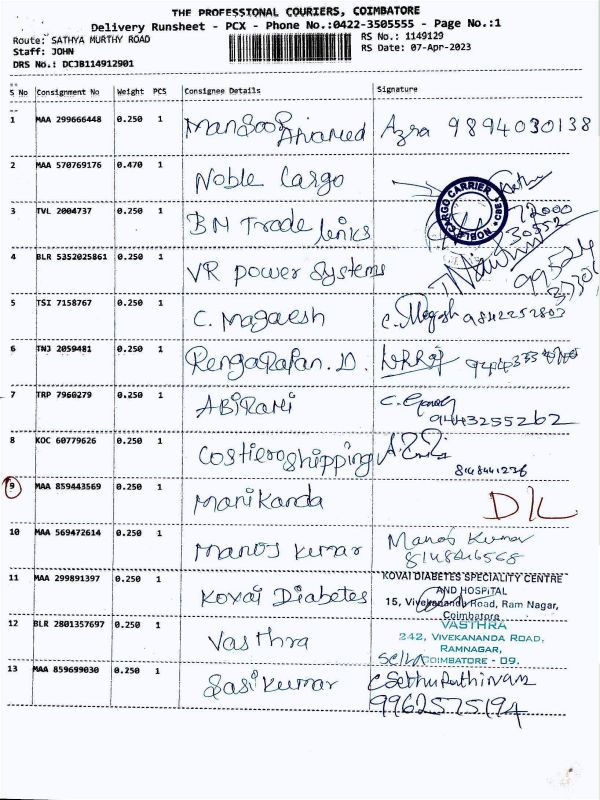 THE PROFESSIONAL COURIERS, COIMBATORE
Delivery Runsheet - PCX - Phone No.:0422-3505555 - Page No.:1
Route: SATHYA MURTHY ROAD RS No.: 1149129
Staff: JOHN RS Date: 07-Apr-2023
DRS No.: DCJB114912901
S No Consignment No Weight PCS Consignee Details Signature
1 MAA 299666448 0.250 1 Mansoor Ahamed Azra 9894030138
2 MAA 570769176 0.470 1 Noble Cargo
NOBLE CARGO CARRIER
3 TVL 2004737 0.250 1 BM Trade links 72000
30552
4 BLR 5352025861 0.250 1 VR power systems 99524
5 TSI 7158767 0.250 1 C. Magaesh C. Magesh 9842252803
6 TNJ 2059481 0.250 1 RengaRajan. D.
7 TRP 7960279 0.250 1 ABiRami
9443255262
8 KOC 60779626 0.250 1 Costiero shipping
8148441236
9 MAA 859443569 0.250 1 Manikanda D/L
10 MAA 569472614 0.250 1 Manoj kumar Manoj Kumar
8148646568
11 MAA 299891397 0.250 1 Kovai Diabetes KOVAI DIABETES SPECIALITY CENTRE
AND HOSPITAL
15, Vivekananda Road, Ram Nagar,
Coimbatore
12 BLR 2801357697 0.250 1 Vasthra VASTHRA
242, VIVEKANANDA ROAD,
RAMNAGAR,
COIMBATORE - 09.
13 MAA 859699030 0.250 1 Sasikumar
9962575194